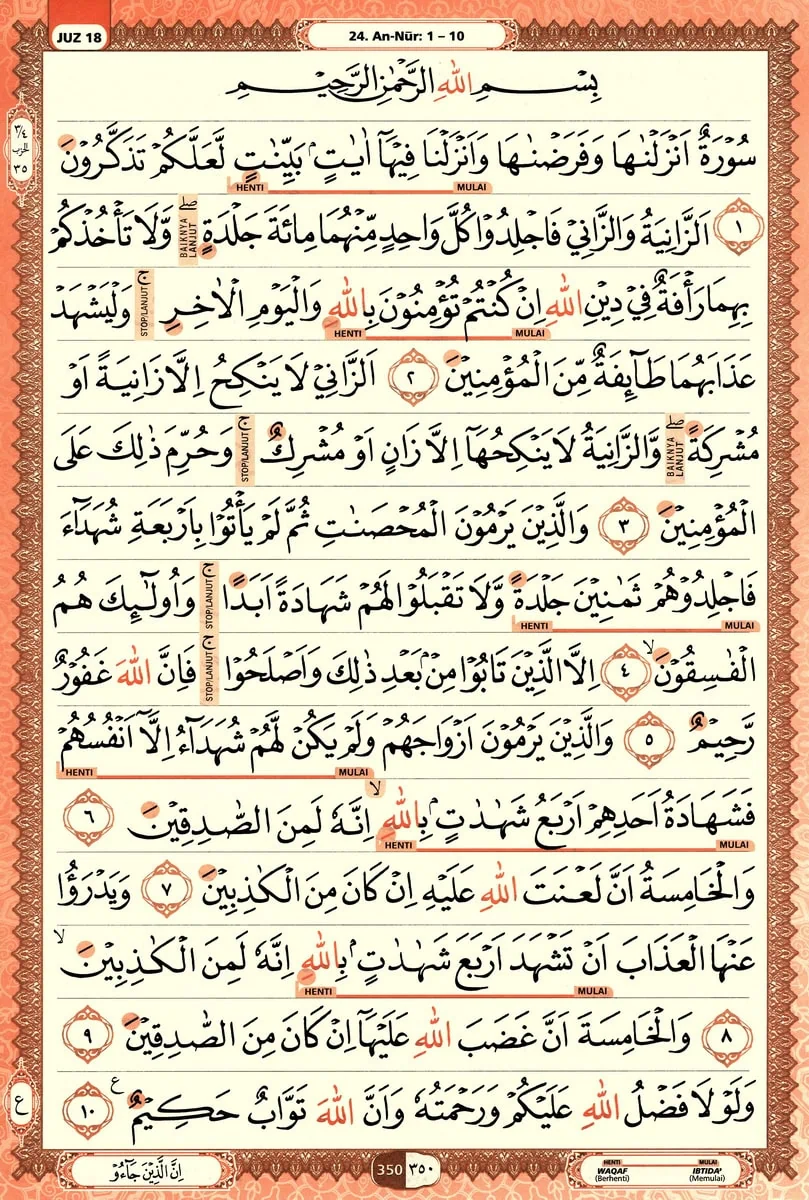 JUZ 18
24. An-Nūr: 1 – 10
بِسْمِ اللّٰهِ الرَّحْمٰنِ الرَّحِيْمِ
٣/٤
الحزب
٣٥
سُوْرَةٌ اَنْزَلْنٰهَا وَفَرَضْنٰهَا وَاَنْزَلْنَا فِيْهَآ اٰيٰتٍۢ بَيِّنٰتٍ لَّعَلَّكُمْ تَذَكَّرُوْنَ
HENTI MULAI
١ اَلزَّانِيَةُ وَالزَّانِيْ فَاجْلِدُوْا كُلَّ وَاحِدٍ مِّنْهُمَا مِائَةَ جَلْدَةٍ ۖ وَّلَا تَأْخُذْكُمْ
BAIKNYA LANJUT
بِهِمَا رَأْفَةٌ فِيْ دِيْنِ اللّٰهِ اِنْ كُنْتُمْ تُؤْمِنُوْنَ بِاللّٰهِ وَالْيَوْمِ الْاٰخِرِ ۚ وَلْيَشْهَدْ
STOP/LANJUT
HENTI MULAI
عَذَابَهُمَا طَاۤىِٕفَةٌ مِّنَ الْمُؤْمِنِيْنَ ٢ اَلزَّانِيْ لَا يَنْكِحُ اِلَّا زَانِيَةً اَوْ
مُشْرِكَةً ۖ وَّالزَّانِيَةُ لَا يَنْكِحُهَآ اِلَّا زَانٍ اَوْ مُشْرِكٌ ۚ وَحُرِّمَ ذٰلِكَ عَلَى
BAIKNYA LANJUT
STOP/LANJUT
الْمُؤْمِنِيْنَ ٣ وَالَّذِيْنَ يَرْمُوْنَ الْمُحْصَنٰتِ ثُمَّ لَمْ يَأْتُوْا بِاَرْبَعَةِ شُهَدَاۤءَ
فَاجْلِدُوْهُمْ ثَمٰنِيْنَ جَلْدَةً وَّلَا تَقْبَلُوْا لَهُمْ شَهَادَةً اَبَدًا ۚ وَاُولٰۤىِٕكَ هُمُ
STOP/LANJUT
HENTI MULAI
الْفٰسِقُوْنَ ۙ ٤ اِلَّا الَّذِيْنَ تَابُوْا مِنْۢ بَعْدِ ذٰلِكَ وَاَصْلَحُوْا ۚ فَاِنَّ اللّٰهَ غَفُوْرٌ
STOP/LANJUT
رَّحِيْمٌ ٥ وَالَّذِيْنَ يَرْمُوْنَ اَزْوَاجَهُمْ وَلَمْ يَكُنْ لَّهُمْ شُهَدَاۤءُ اِلَّآ اَنْفُسُهُمْ
HENTI MULAI
فَشَهَادَةُ اَحَدِهِمْ اَرْبَعُ شَهٰدٰتٍۢ بِاللّٰهِ ۙ اِنَّهٗ لَمِنَ الصّٰدِقِيْنَ ٦
HENTI MULAI
وَالْخَامِسَةُ اَنَّ لَعْنَتَ اللّٰهِ عَلَيْهِ اِنْ كَانَ مِنَ الْكٰذِبِيْنَ ٧ وَيَدْرَؤُا
عَنْهَا الْعَذَابَ اَنْ تَشْهَدَ اَرْبَعَ شَهٰدٰتٍۢ بِاللّٰهِ اِنَّهٗ لَمِنَ الْكٰذِبِيْنَ ۙ
HENTI MULAI
٨ وَالْخَامِسَةَ اَنَّ غَضَبَ اللّٰهِ عَلَيْهَآ اِنْ كَانَ مِنَ الصّٰدِقِيْنَ ٩
وَلَوْلَا فَضْلُ اللّٰهِ عَلَيْكُمْ وَرَحْمَتُهٗ وَاَنَّ اللّٰهَ تَوَّابٌ حَكِيْمٌ ع ١٠
ع
اِنَّ الَّذِيْنَ جَاۤءُوْ
350 ٣٥٠
HENTI MULAI
WAQAF IBTIDA'
(Berhenti) (Memulai)